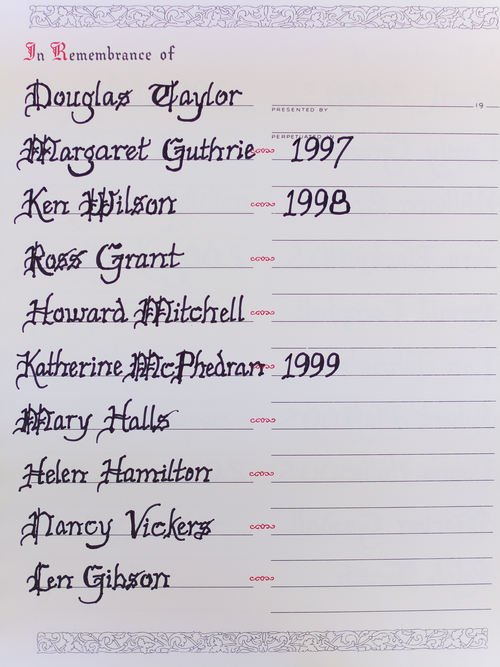 In Remembrance of
Douglas Taylor
PRESENTED BY 19
PERPETUATED IN
Margaret Guthrie 1997
Ken Wilson 1998
Ross Grant
Howard Mitchell
Katherine McPhedran 1999
Mary Halls
Helen Hamilton
Nancy Vickers
Len Gibson